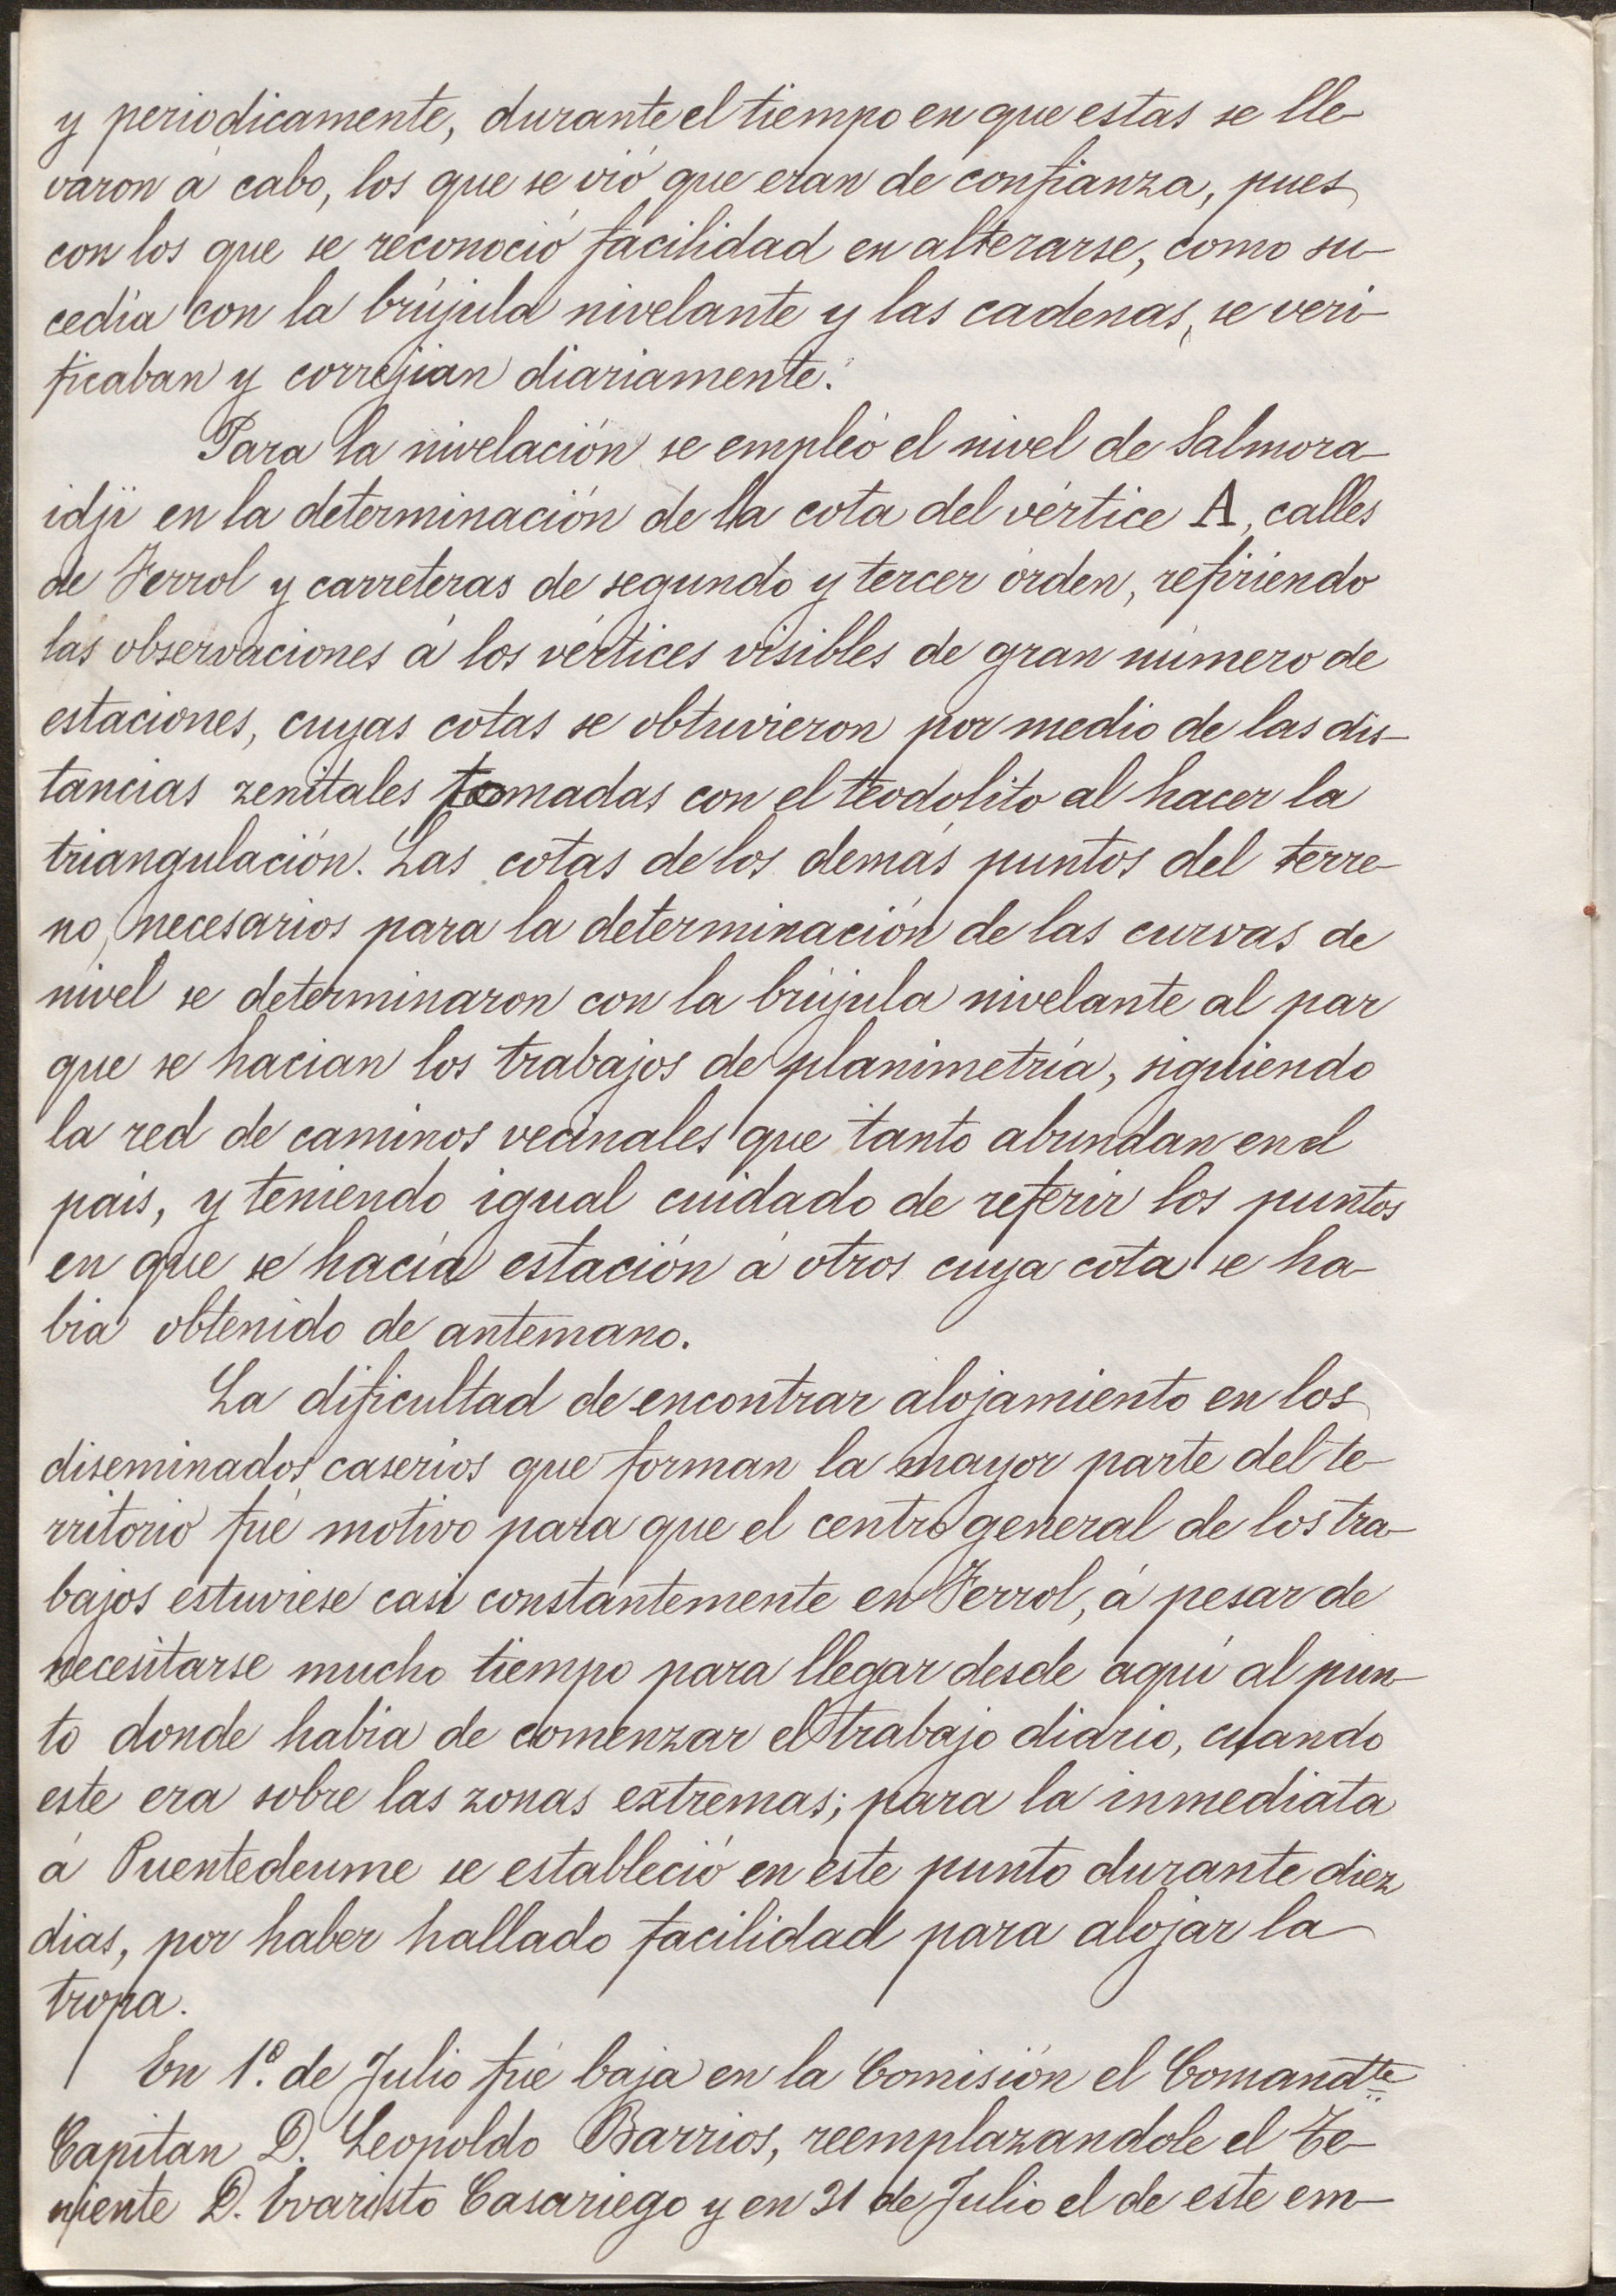 y periódicamente, durante el tiempo en que estas se lle-
varon á cabo, los que se vió que eran de confianza, pues
con los que se reconoció facilidad en alterarse, como su-
cedía con la brújula nivelante y las cadenas, se veri-
ficaban y correjian diariamente.
Para la nivelación se empleó el nivel de Salmora-
idji en la determinación de la cota del vértice A, calles
de Ferrol y carreteras de segundo y tercer órden, refiriendo
las observaciones á los vértices visibles de gran número de
estaciones, cuyas cotas se obtuvieron por medio de las dis-
tancias zenitales tomadas con el teodolito al hacer la
triangulación. Las cotas de los demás puntos del terre-
no, necesarios para la determinación de las curvas de
nivel se determinaron con la brújula nivelante al par
que se hacian los trabajos de planimetría, siguiendo
la red de caminos vecinales que tanto abundan en el
pais, y teniendo igual cuidado de referir los puntos
en que se hacía estación á otros cuya cota se ha-
bia obtenido de antemano.
La dificultad de encontrar alojamiento en los
diseminados caserios que forman la mayor parte del te-
rritorio fué motivo para que el centro general de los tra-
bajos estuviese casi constantemente en Ferrol, á pesar de
necesitarse mucho tiempo para llegar desde aquí al pun-
to donde habia de comenzar el trabajo diario, cuando
este era sobre las zonas extremas; para la inmediata
á Puentedeume se estableció en este punto durante diez
dias, por haber hallado facilidad para alojar la
tropa.
En 1º. de Julio fué baja en la Comisión el Comandte
Capitan D. Leopoldo Barrios, reemplazandole el Te-
niente D. Evaristo Casariego y en 31 de Julio el de este em-